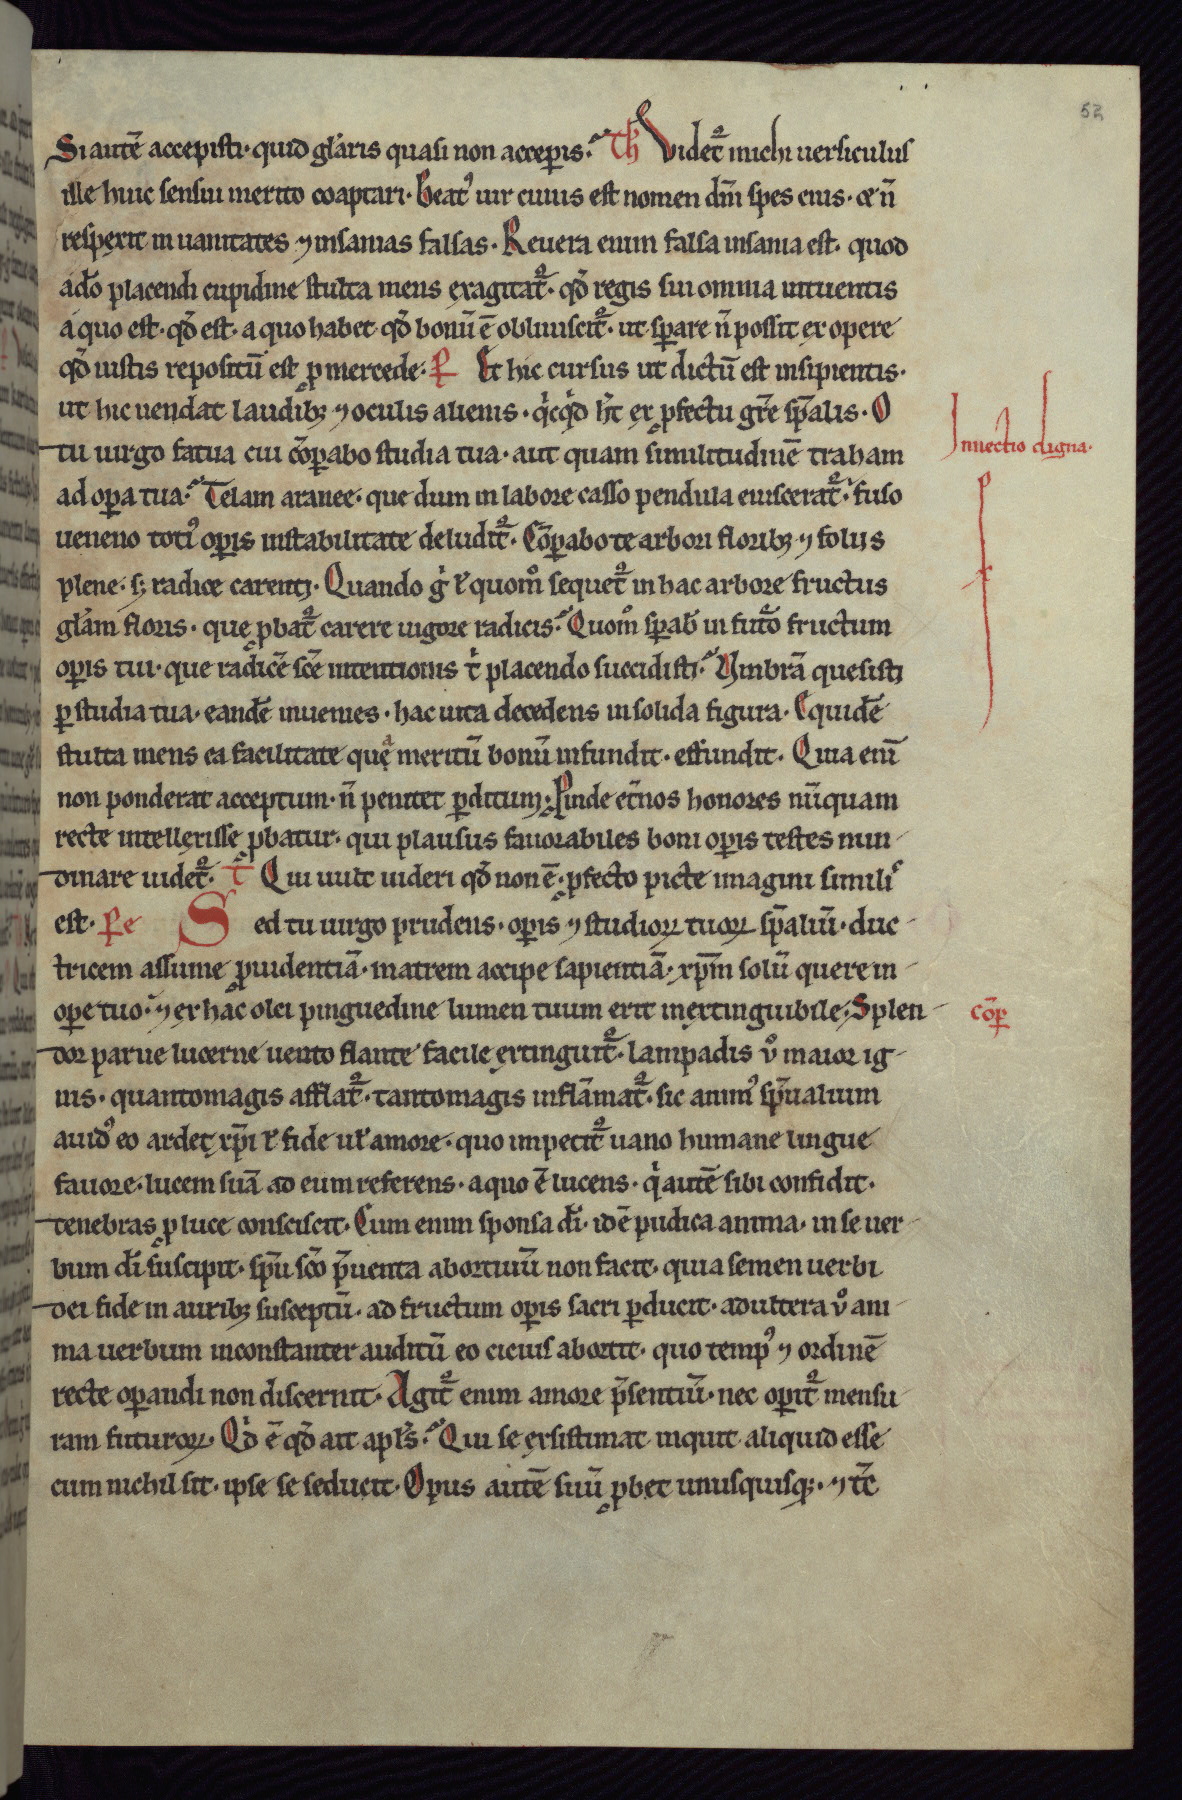 52
Si autē accepisti· quid gl̄aris quasi non acceperis? Th Videt̄ michi uersiculus
ille huic sensui merito coaptari· Beatꝰ uir cuius est nomen dn̄i spes eius· et n̄
respexit in uanitates ⁊ insanias falsas· Reuera enim falsa insania est· quod
adō placendi cupidine stulta mens exagitat᷑· qd̄ regis sui omnia intuentis
a quo est· qd̄ est· a quo habet qd̄ bonū ē obliuiscit᷑· ut sꝑare n̄ possit ex opere
qd̄ iustis repositū est ꝓ mercede· P Et hic cursus ut dictū est insipientis·
ut hic uendat laudibꝫ ⁊ oculis alienis· qͥcqͥd ht̄ ex ꝓfectu gr̄e spālis· O
tu uirgo fatua cui cōꝑabo studia tua· aut quam similitudinē traham
Inuectio digna·
ad oꝑa tua? Telam aranee· que dum in labore casso pendula euiscerat᷑· fuso
ueneno totiꝰ oꝑis instabilitate deludit᷑· Cōꝑabo te arbori floribꝫ ⁊ foliis
plene· sꝫ radice carenti· Quando gͥ ł quom̊ sequet᷑ in hac arbore fructus
gl̄am floris· que ꝓbat᷑ carere uigore radicis? Quom̊ sꝑab̄ in fut̄o fructum
oꝑis tui· que radicē sc̄e intentionis tͥ placendo succidisti? Vmbrā quesisti
ꝑ studia tua· eandē inuenies· hac uita decedens in solida figura· Equidē
stulta mens ea facilitate quę meritū bonū infundit· effundit· Quia enī
non ponderat acceptum· n̄ penitet ꝑditum· Pinde et̄nos honores nūquam
recte intellexisse ꝓbatur· qui plausus fauorabiles boni oꝑis testes nun-
dinare uidet᷑· T Qui uult uideri qd̄ non ē· ꝓfecto picte imagini simil'
est· Pe Sed tu uirgo prudens· oꝑis ⁊ studioꝝ tuoꝝ spāliū· duc-
tricem assume ꝓuidentiā· matrem accipe sapientiā· xp̄m solū quere in
oꝑe tuo· ⁊ ex hac olei pinguedine lumen tuum erit inextinguibile· Splen-
cōꝑ
dor parue lucerne uento flante facile extinguit᷑· lampadis ů maior ig-
nis· quantomagis afflat᷑· tantomagis inflāmat᷑· sic animꝰ sp̄ualium
auidꝰ eo ardet xp̄i ł fide uł amore· quo impetit᷑ uano humane lingue
fauore· lucem suā ad eum referens· a quo ē lucens· qͥ autē sibi confidit·
tenebras ꝓ luce consciscit· Cum enim sponsa dī· idē pudica anima· in se uer-
bum dī suscipit· sp̄u sc̄o p̄uenta abortiuū non facit· quia semen uerbi
dei fide in auribꝫ susceptū· ad fructum oꝑis sacri ꝑducit· adultera ů ani-
ma uerbum inconstanter auditū eo cicius abortit· quo tempꝰ ⁊ ordinē
recte oꝑandi non discernit· Agit᷑ enim amore p̄sentiū· nec oꝑit᷑ mensu-
ram futuroꝝ· Qd̄ ē qd̄ ait apl's? Qui se existimat inquit aliquid esse
cum nichil sit· ipse se seducit· Opus autē suū ꝓbet unusquisqꝫ· ⁊ tc̄